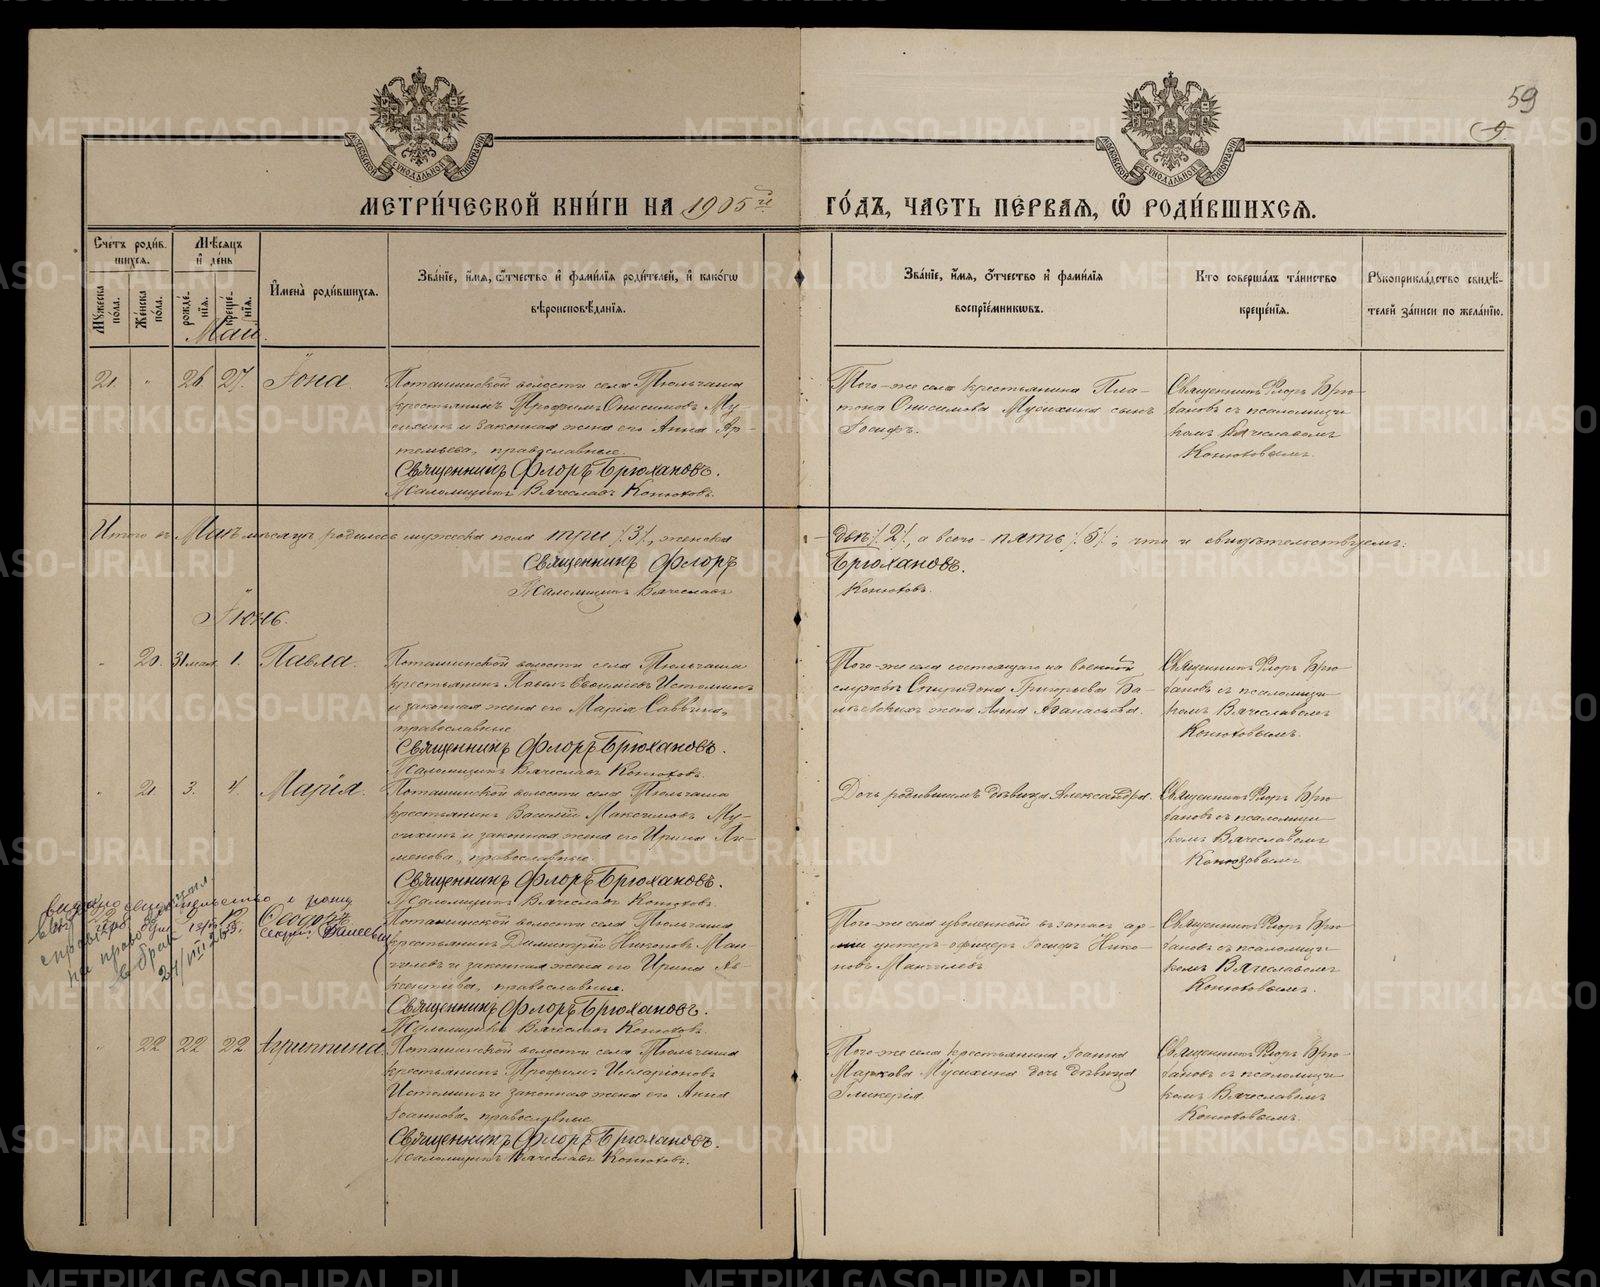 59
МОСКОВСКОЙ СѴНОДАЛЬНОЙ ТИПОГРАФІИ
МОСКОВСКОЙ СѴНОДАЛЬНОЙ ТИПОГРАФІИ
МЕТРИ́ЧЕСКОЙ КНИ́ГИ НА 1905й ГО́ДЪ, ЧАСТЬ ПЕ́РВАЯ, Ѡ҆ РОДИ́ВШИХСЯ.
Счетъ роди́вшихся.
Мꙋжеска по́ла.
Же́нска по́ла.
Мѣ́сяцъ и҆ де́нь
рожде́нїя.
креще́нїя.
И҆мена̀ роди́вшихся.
Зва́нїе, и҆́мя, ѻ҆́тчество и҆ фами́лїя роди́телей, и҆ како́гѡ
вѣроисповѣ́данїя.
Зва́нїе, и҆́мя, ѻ҆́тчество и҆ фами́лїя
воспрїе́мникѡвъ.
Кто соверша́лъ та́инство
креще́нїя.
Рꙋкоприкла́дство свидѣ́-
телей за́писи по жела́нїю.
Май.
21. " 26 27. Іона.
Поташинской волости села Тюльгаша
крестьянинъ Трофимъ Онисимовъ Му-
сихинъ и законная жена его Анна Ар-
темьева, православные.
Священникъ Флоръ Брюхановъ.
Псаломщикъ Вячеславъ Конюховъ.
Того-же села крестьянина Пла-
тона Онисимова Мусихина сынъ
Іосифъ.
Священникъ Флоръ Брю-
хановъ съ псаломщи-
комъ Вячеславомъ
Конюховымъ.
Итого въ Маѣ мѣсяцѣ родилось мужеска пола три /3/, женска
двѣ /2/, а всего - пять /5/; что и свидѣтельствуемъ:
Священникъ Флоръ Брюхановъ.
Псаломщикъ Вячеславъ Конюховъ.
Іюнь.
" 20. 31 мая. 1. Павла.
Поташинской волости села Тюльгаша
крестьянинъ Павелъ Евфиміевъ Истоминъ
и законная жена его Марія Саввина,
православные
Священникъ Флоръ Брюхановъ.
Псаломщикъ Вячеславъ Конюховъ.
Того-же села состоящаго на военной
службѣ Спиридона Григорьева
жена Анна Аѳанасьева.
Священникъ Флоръ Брю-
хановъ съ псаломщи-
комъ Вячеславомъ
Конюховымъ.
" 21 3. 4. Марія.
Поташинской волости села Тюльгаша
крестьянинъ Василій Максимовъ Му-
сихинъ и законная жена его Ирина
православные.
Священникъ Флоръ Брюхановъ.
Псаломщикъ Вячеславъ Конюховъ.
Дочь родившимъ дѣвица Александра.
Священникъ Флоръ Брю-
хановъ съ псаломщи-
комъ Вячеславомъ
Конюховымъ.
справка
на право
в брак
24/VII 26
Ѳеодоръ
Поташинской волости села Тюльгаша
крестьянинъ Димитрій Никоновъ Ман-
гилевъ и законная жена его Ирина Ав-
ксентіева, православные.
Священникъ Флоръ Брюхановъ.
Псаломщикъ Вячеславъ Конюховъ.
Того-же села уволенной въ запасъ ар-
міи унтеръ-офицеръ Іосифъ Нико-
новъ Мангилевъ
Священникъ Флоръ Брю-
хановъ съ псаломщи-
комъ Вячеславомъ
Конюховымъ.
" 22 22 22 Агриппина.
Поташинской волости села Тюльгаша
крестьянинъ Трофимъ Илларіоновъ
Истоминъ и законная жена его Анна
Іоаннова, православные
Священникъ Флоръ Брюхановъ.
Псаломщикъ Вячеславъ Конюховъ.
Того-же села крестьянина Іоанна
Маркова Мусихина дочь дѣвица
Гликерія
Священникъ Флоръ Брю-
хановъ съ псаломщи-
комъ Вячеславомъ
Конюховымъ.
METRIKI.GASO-URAL.RU